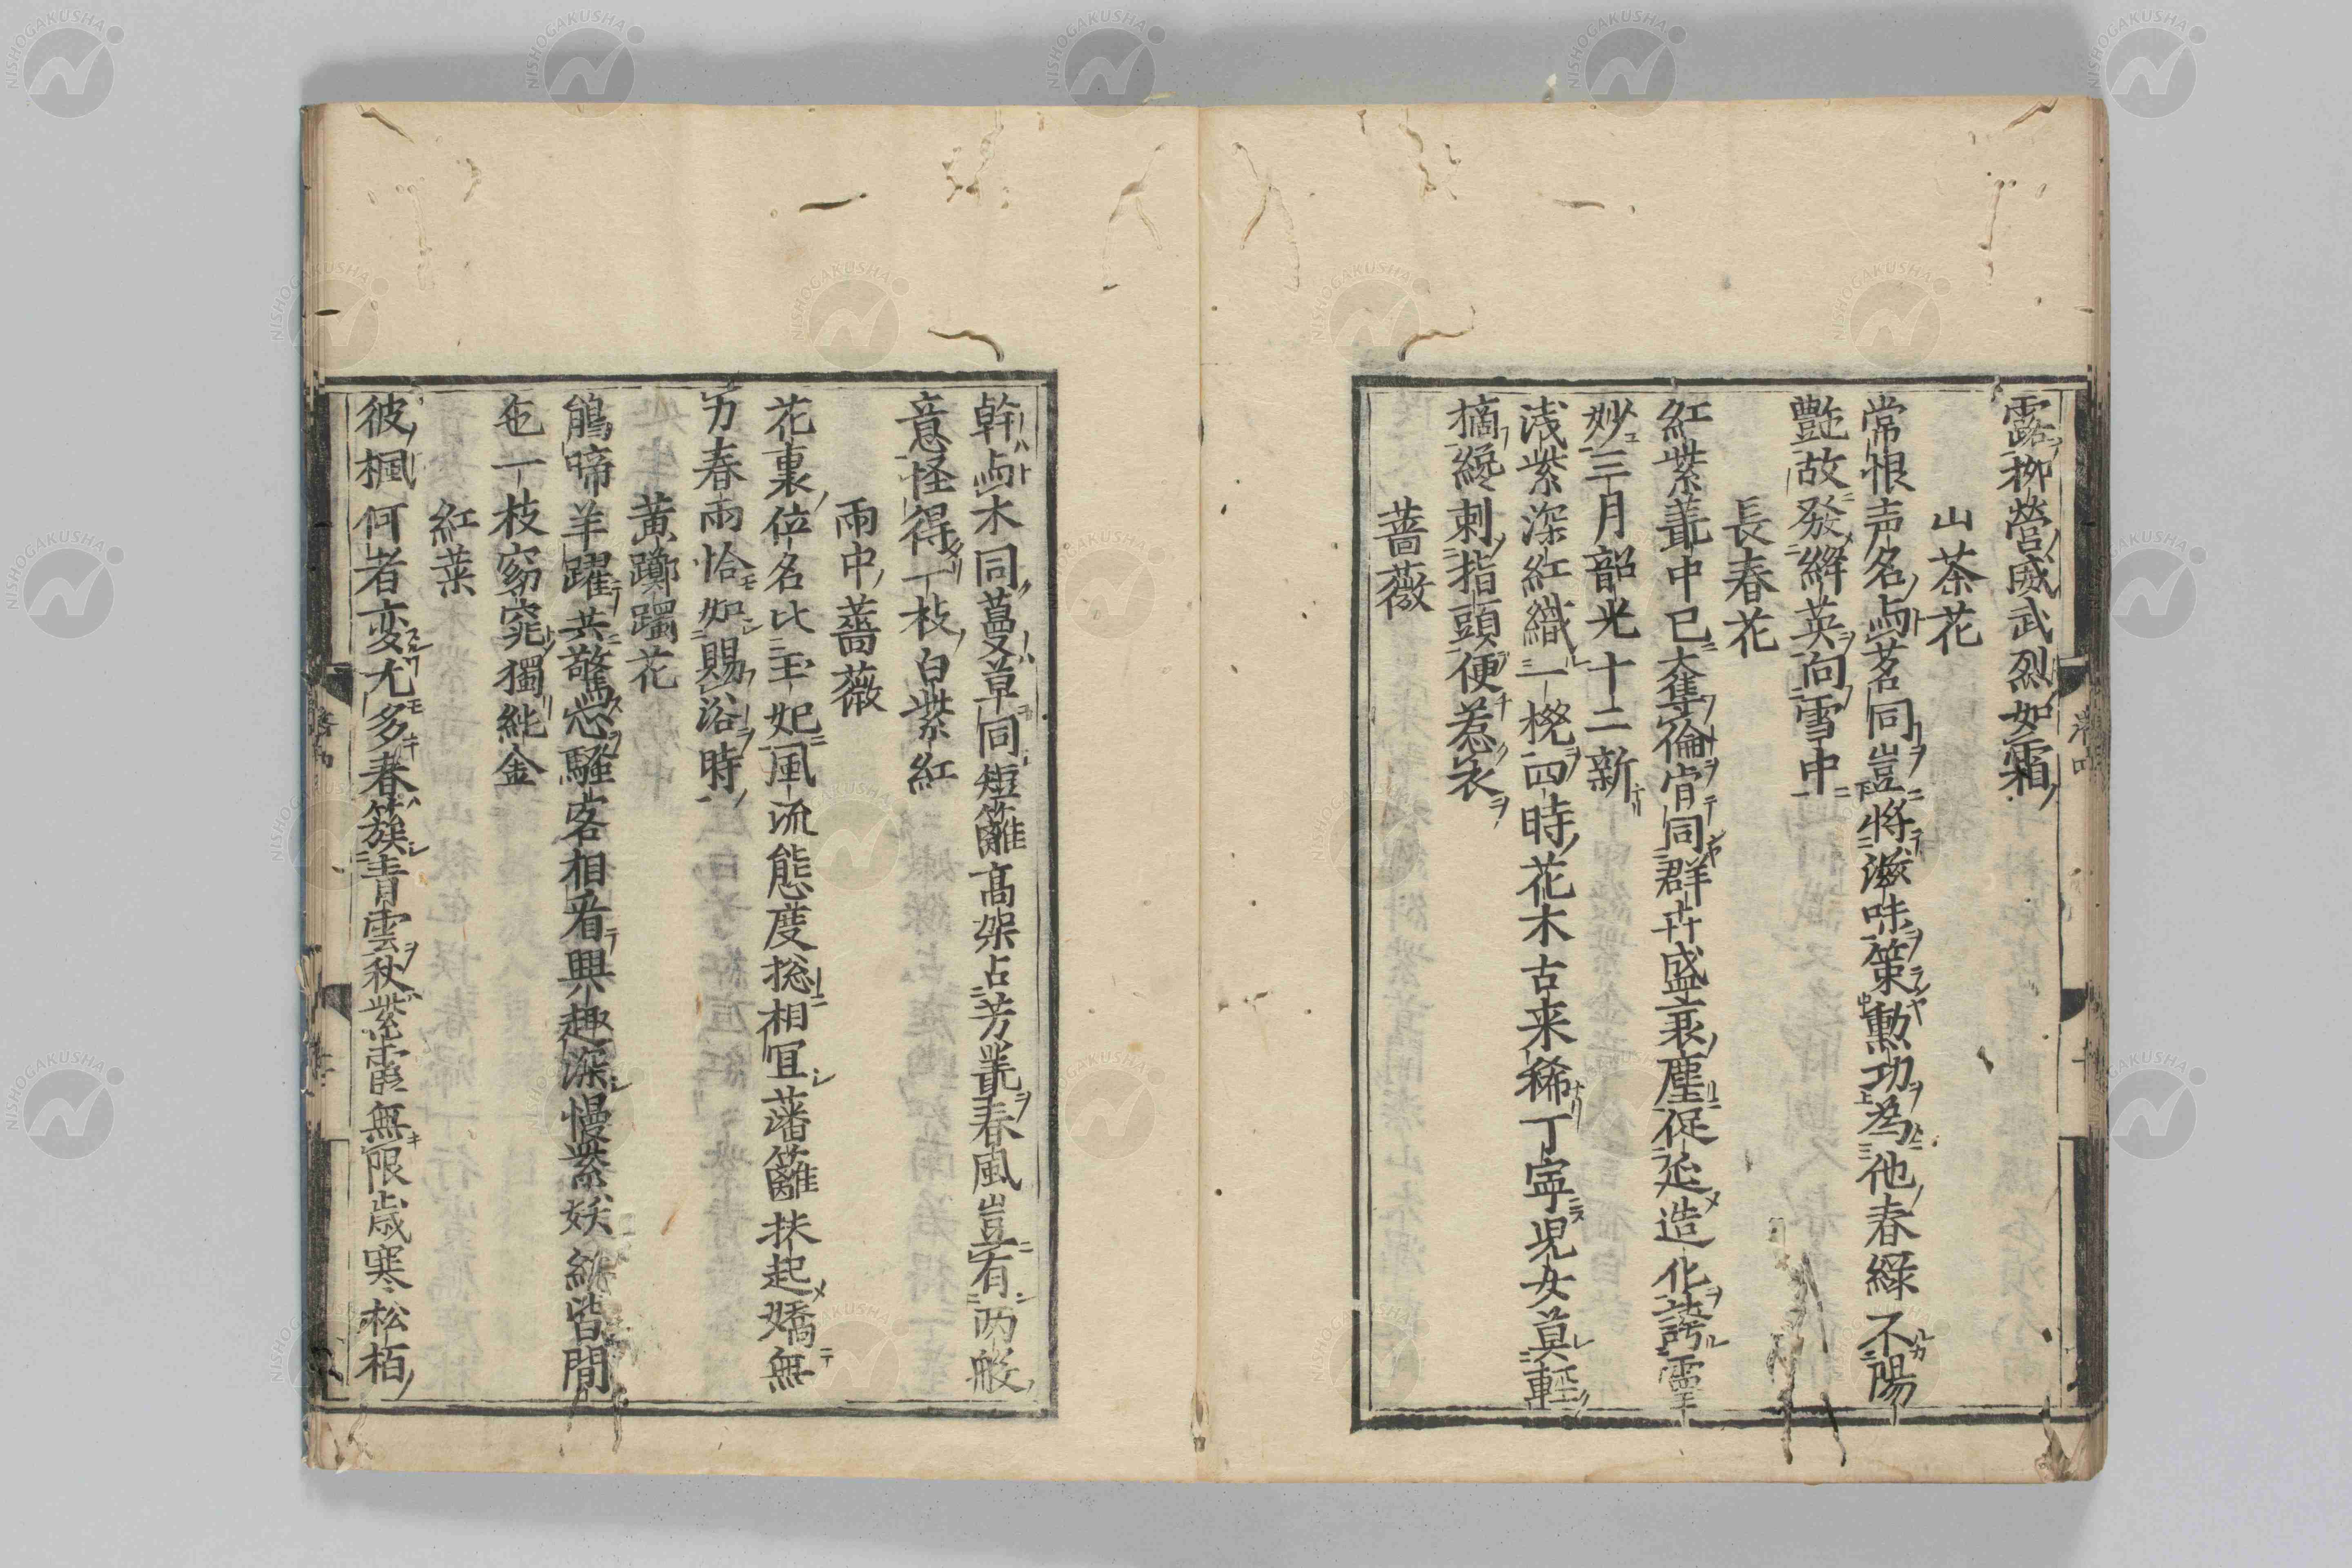 露柳営威武烈如霜
山茶花
常恨声名与茗同豈将滋味策勲功為他春緑不陽
艶故發絳英向雪中
長春花
紅紫叢中已奪倫肯同群卉盛衰塵促延造化誇霊
妙三月韶光十二新
浅紫深紅織一機四時花木古来稀丁寧児女莫軽
摘纔刺指頭便惹衣
薔薇
幹与木同蔓草同短籬高架占芳叢春風豈有両般
意怪得一枝白紫紅
雨中薔薇
花裏位名比玉妃風流態度捴相冝藩籬扶起嬌無
力春雨恰如賜浴時
黄躑躅花
鵑啼羊躍共驚心騒客相看興趣深慢紫妖紅皆閒
色一枝窈窕獨純金
紅葉
彼楓何者変尤多春簇青雲秋紫霞無限歳寒松栢